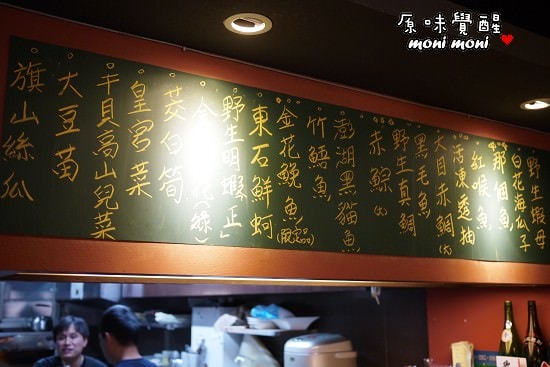 原味覺醒
moni moni
野生蝦母
白花海瓜子
那個魚
紅喉魚
活凍透抽
大目赤鯛(大)
黑毛魚
野生真鯛
赤鯮(大)
澎湖黑貓魚
竹𩸙魚
金花鯢魚
東石鮮蚵
野生明蝦「正」
(綠)
茭白筍
皇宮菜
干貝高山兒菜
大豆苗
旗山絲瓜